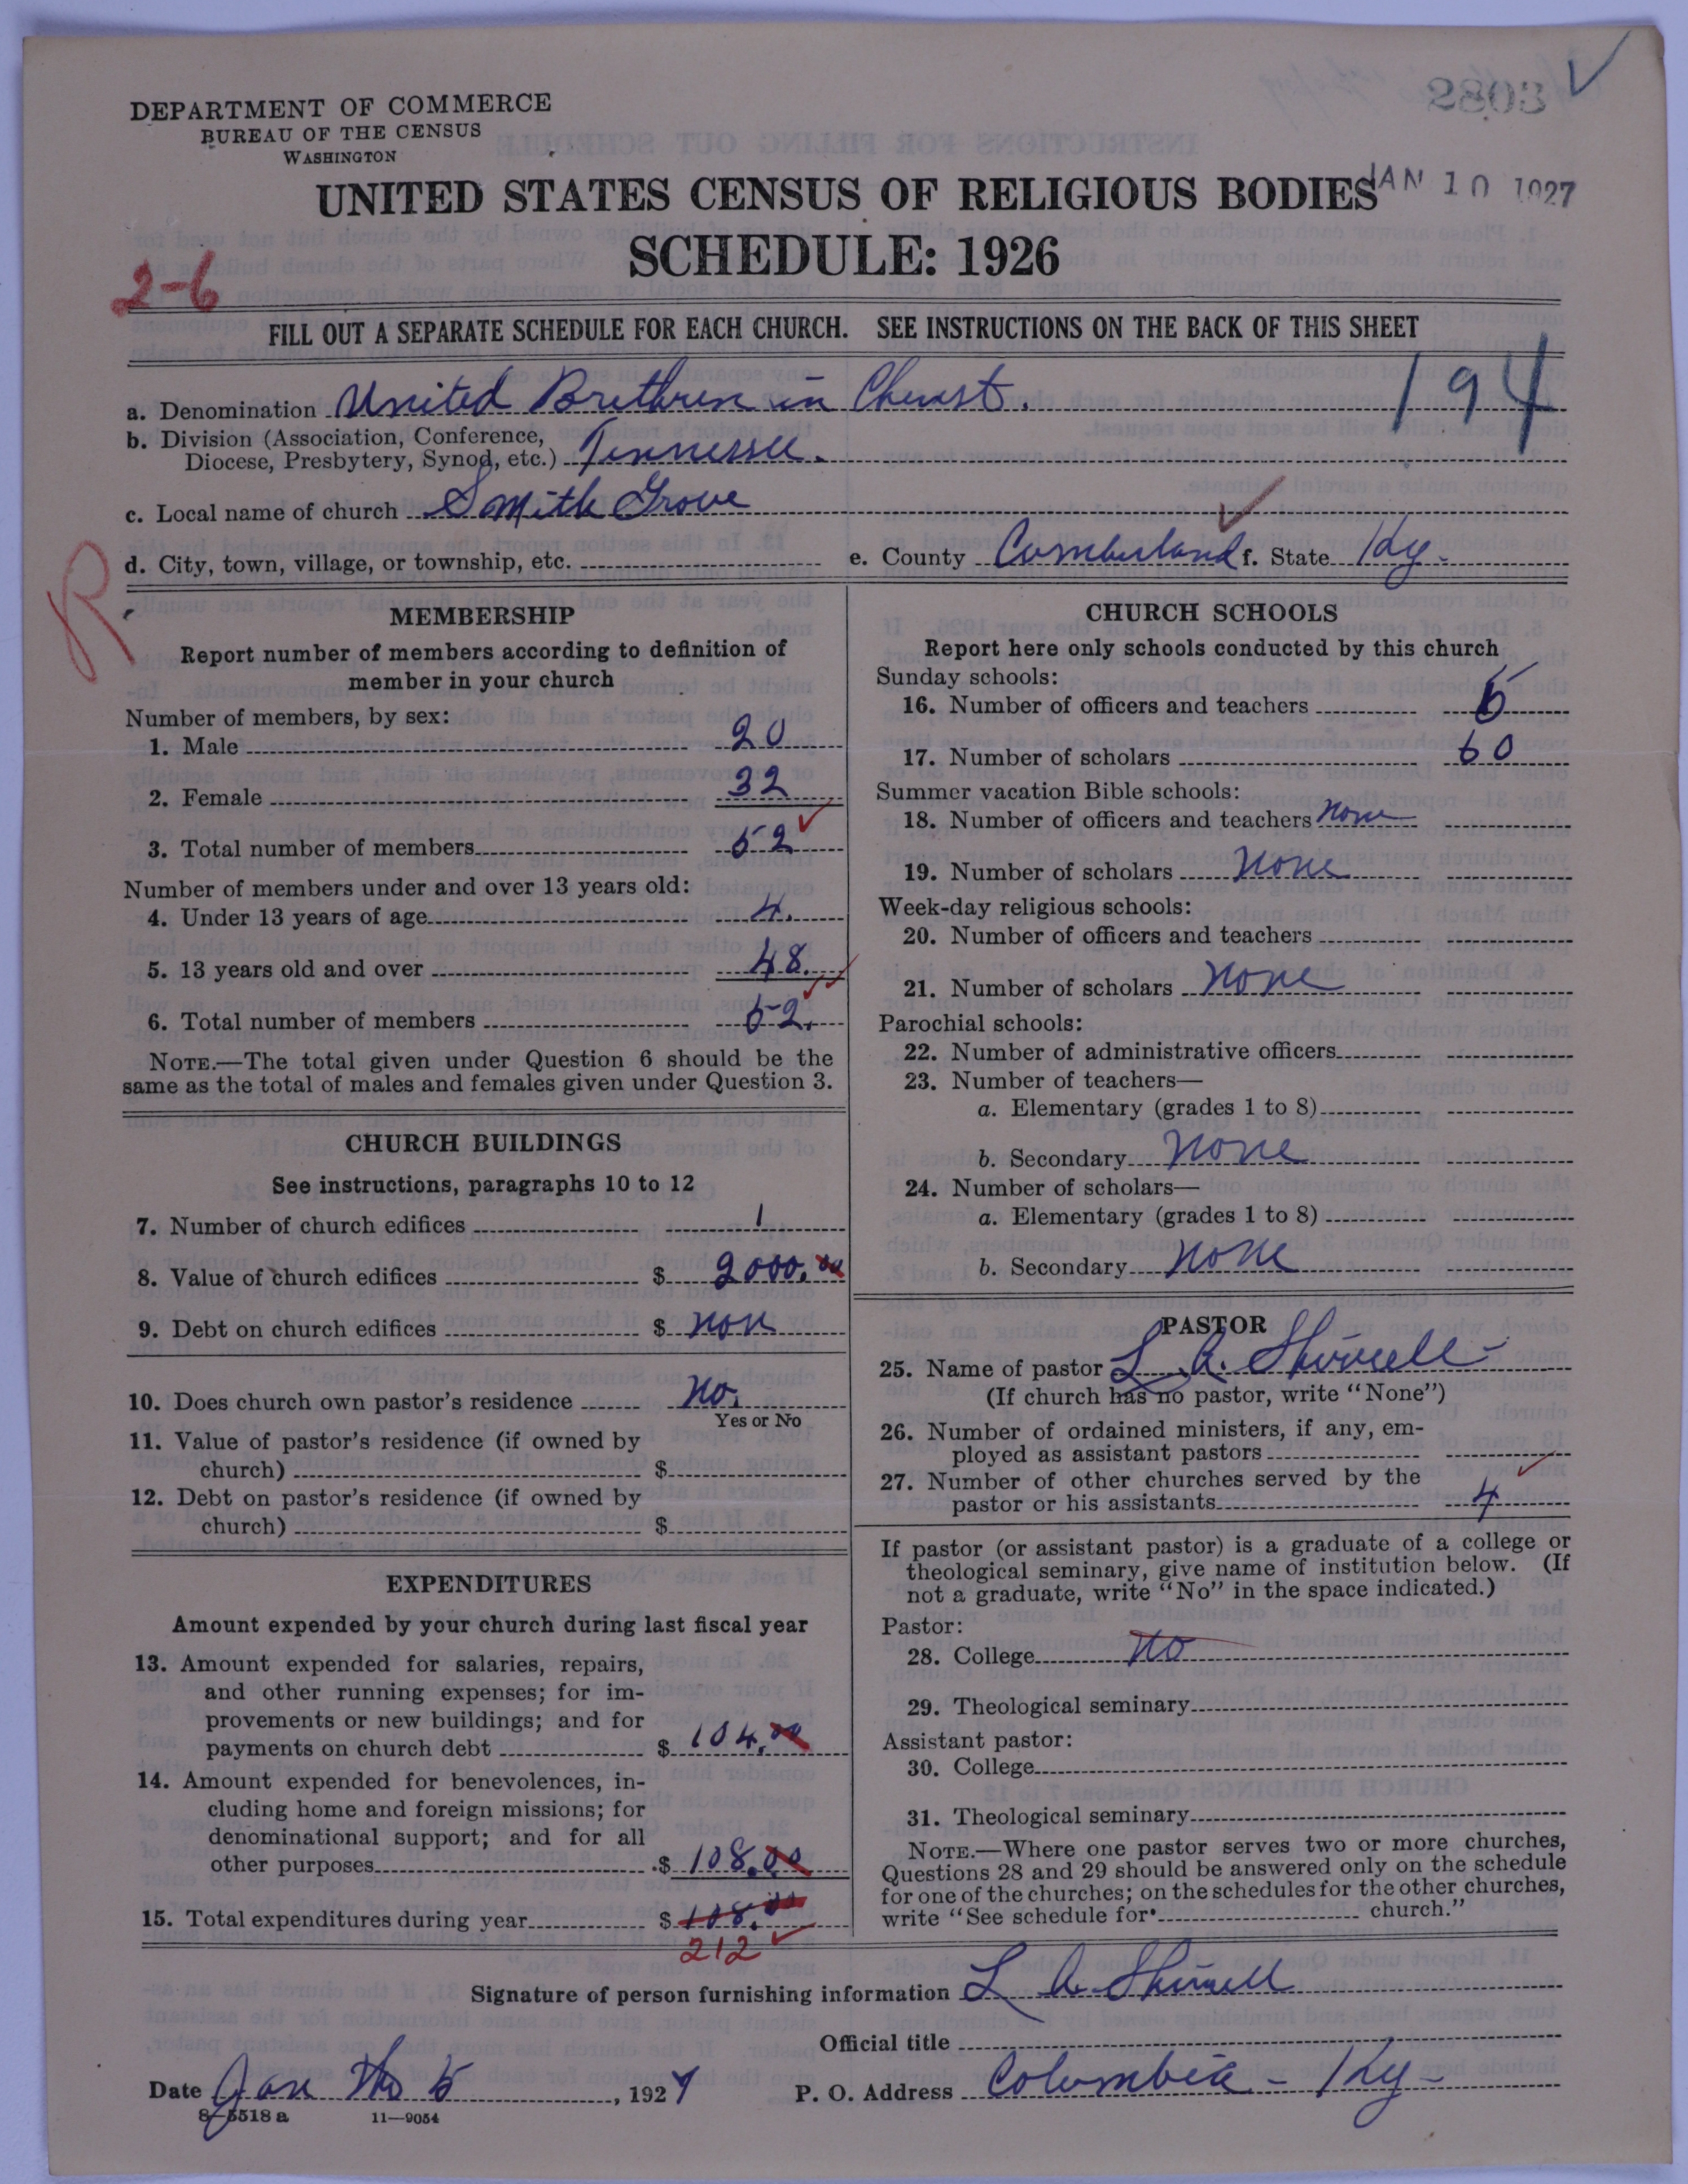 DEPARTMENT OF COMMERCE
BUREAU OF THE CENSUS
WASHINGTON
UNITED STATES CENSUS OF RELIGIOUS BODIES
JAN 10 1927
SCHEDULE: 1926
2-6
FILL OUT A SEPARATE SCHEDULE FOR EACH CHURCH. SEE INSTRUCTIONS ON THE BACK OF THIS SHEET
194
a. Denomination United Brethren in Christ.
b. Division (Association, Conference,
Diocese, Presbytery, Synod, etc.) Tennessee.
c. Local name of church Smith Grove
d. City, town, village, or township, etc.
e. County Cumberland f. State Ky-
R
MEMBERSHIP
Report number of members according to definition of
member in your church
Number of members, by sex:
1. Male 20
2. Female 32
3. Total number of members 52
Number of members under and over 13 years old:
4. Under 13 years of age 4.
5. 13 years old and over 48.
6. Total number of members 52.
NOTE.—The total given under Question 6 should be the
same as the total of males and females given under Question 3.
CHURCH BUILDINGS
See instructions, paragraphs 10 to 12
7. Number of church edifices 1
8. Value of church edifices $ 2000.00
9. Debt on church edifices $ non
10. Does church own pastor's residence No.
Yes or No
11. Value of pastor's residence (if owned by
church) $
12. Debt on pastor's residence (if owned by
church) $
EXPENDITURES
Amount expended by your church during last fiscal year
13. Amount expended for salaries, repairs,
and other running expenses; for im-
provements or new buildings; and for
payments on church debt $ 104.00
14. Amount expended for benevolences, in-
cluding home and foreign missions; for
denominational support; and for all
other purposes $ 108.00
15. Total expenditures during year $ 108.00
212
CHURCH SCHOOLS
Report here only schools conducted by this church
Sunday schools:
16. Number of officers and teachers
17. Number of scholars 60
Summer vacation Bible schools:
18. Number of officers and teachers none
19. Number of scholars none
Week-day religious schools:
20. Number of officers and teachers
21. Number of scholars none
Parochial schools:
22. Number of administrative officers
23. Number of teachers—
a. Elementary (grades 1 to 8)
b. Secondary none
24. Number of scholars—
a. Elementary (grades 1 to 8)
b. Secondary none
PASTOR
25. Name of pastor L. A.
(If church has no pastor, write "None")
26. Number of ordained ministers, if any, em-
ployed as assistant pastors
27. Number of other churches served by the
pastor or his assistants 4
If pastor (or assistant pastor) is a graduate of a college or
theological seminary, give name of institution below. (If
not a graduate, write "No" in the space indicated.)
Pastor:
28. College no
29. Theological seminary
Assistant pastor:
30. College
31. Theological seminary
NOTE.—Where one pastor serves two or more churches,
Questions 28 and 29 should be answered only on the schedule
for one of the churches; on the schedules for the other churches,
write "See schedule for church."
Signature of person furnishing information L A
Official title
Date Jan 5, 1927
P. O. Address Columbia - Ky-
8-5518 a 11-9054